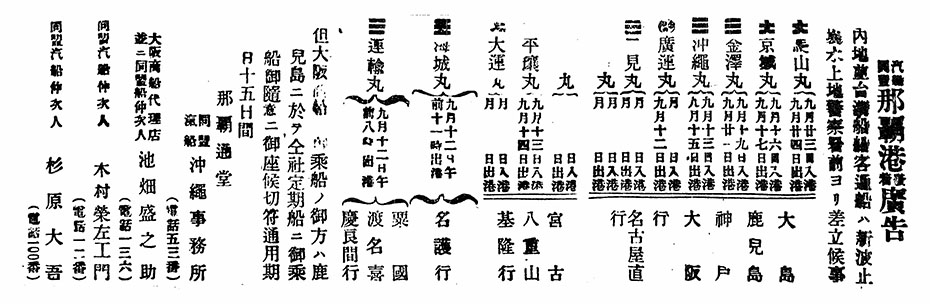 汽船同盟那覇港発着廣告
內地並台灣船船客通船ハ新波止
塲水上地警察署前ヨリ差立候事
山丸 九月廿三日入港 九月廿四日出港 大島
京城丸 九月十六日入港 九月十七日出港 鹿兒島
金澤丸 九月十九日入港 九月廿一日出港 神戸
沖繩丸 九月十三日入港 九月十五日出港 大阪
廣運丸 九月十二 行
二見丸 月 日入港 月 日出港 名古屋直行
丸 月 日入港 月 日出港
丸 月 日入港 月 日出港 宮古
平壤丸 九月十三日入港 九月十四日出港 八重山
大運丸 月 日入港 月 日出港 基隆行
城丸 九月十二日午前十一時出港 名護行
運輸丸 九月十二日午前八時出港 粟國 渡名喜 慶良間行
但大阪商船 御乘船ノ御方ハ鹿
兒島ニ於テ全社定期船ニ御乘
船御隨意ニ御座候切符通用期
日十五日間
那覇通堂
同盟汽船 沖繩事務所
(電話五三番)
大阪商船代理店
並ニ同盟船仲次人 池畑盛之助
(電話一三六)
同盟汽船仲次人 木村榮左工門
(電話一二番)
同盟汽船仲次人 杉原大吾
(電話100番)